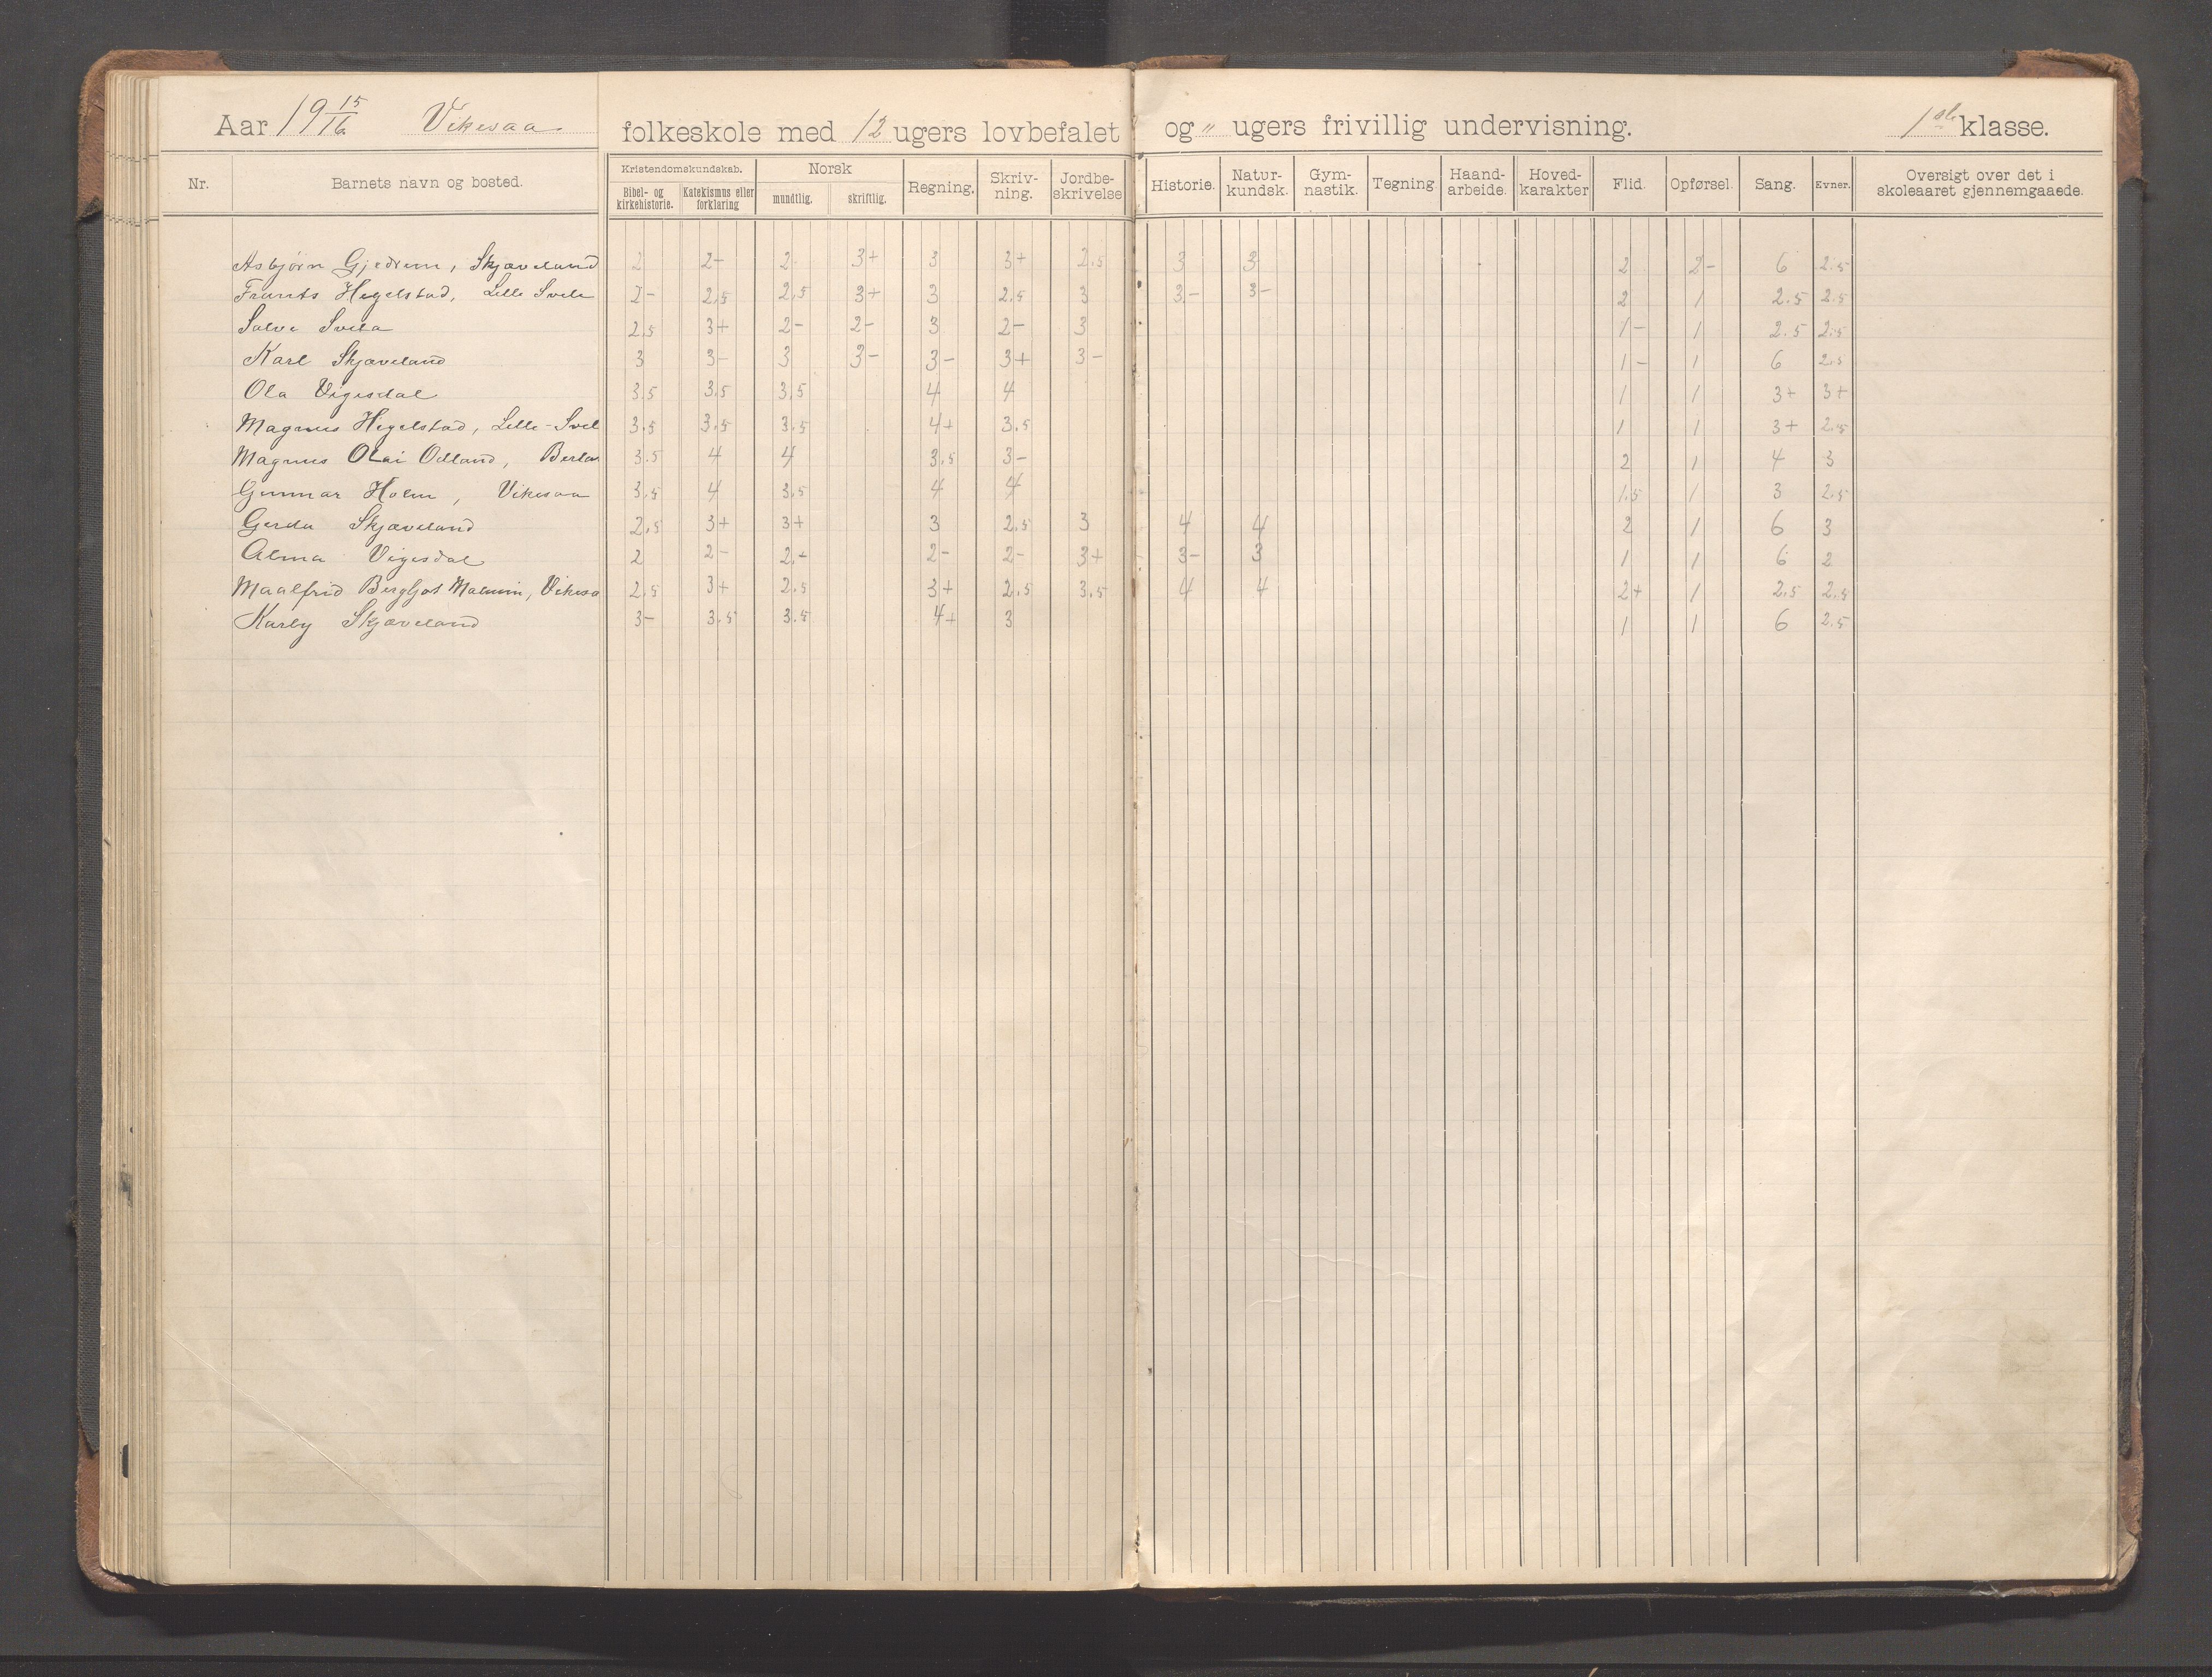 Aar 19 15/16 Vikesaa folkeskole med 12 ugers lovbefalet og " ugers frivillig undervisning. 1ste klasse.
Nr. Barnets navn og bosted. Kristendomskundskab. Bibel- og kirkehistorie. Katekismus eller forklaring Norsk mundtlig. skriftlig. Regning. Skriv-ning. Jordbe-skrivelse Historie. Natur-kundsk. Gym-nastik. Tegning. Haand-arbeide. Hoved-karakter Flid. Opførsel. Sang. Evner. Oversigt over det i skoleaaret gjennemgaaede.
Asbjørn Gjedrem, Skjæveland 2 2- 2- 3+ 3 3+ 2.5 3 3 2 2- 6 2.5
Frants Hegelstad, Lille Svela 2- 2.5 2.5 3+ 3 2.5 3 3- 3- 2 1 2.5 2.5
Salve Svela 2.5 3+ 2- 2- 3 2- 3 1- 1 2.5 2.5
Karl Skjæveland 3 3- 3 3- 3- 3+ 3- 1- 1 6 2.5
Ola Vigesdal 3.5 3.5 3.5 4 4 1 1 3+ 3+
Magnus Hegelstad, Lille-Svel 3.5 3.5 3.5 4+ 3.5 1 1 3+ 2.5
Magnus Olai Odland, 3.5 4 4 3.5 3- 2 1 4 3
Gunnar Holm, Vikesaa 3.5 4 3.5 4 4 1.5 1 3 2.5
Gerda Skjæveland 2.5 3+ 3+ 3 2.5 3 4 4 2 1 6 3
Alma Vigesdal 2 2- 2.- 2- 2- 3+ 3- 3 1 1 6 2
Maalfrid Bergljot Malmin, Vikesa 2.5 3+ 2.5 3+ 2.5 3.5 4 4 2+ 1 2.5 2.5
Karly Skjæveland 3- 3.5 3.5 4+ 3 1 1 6 2.5